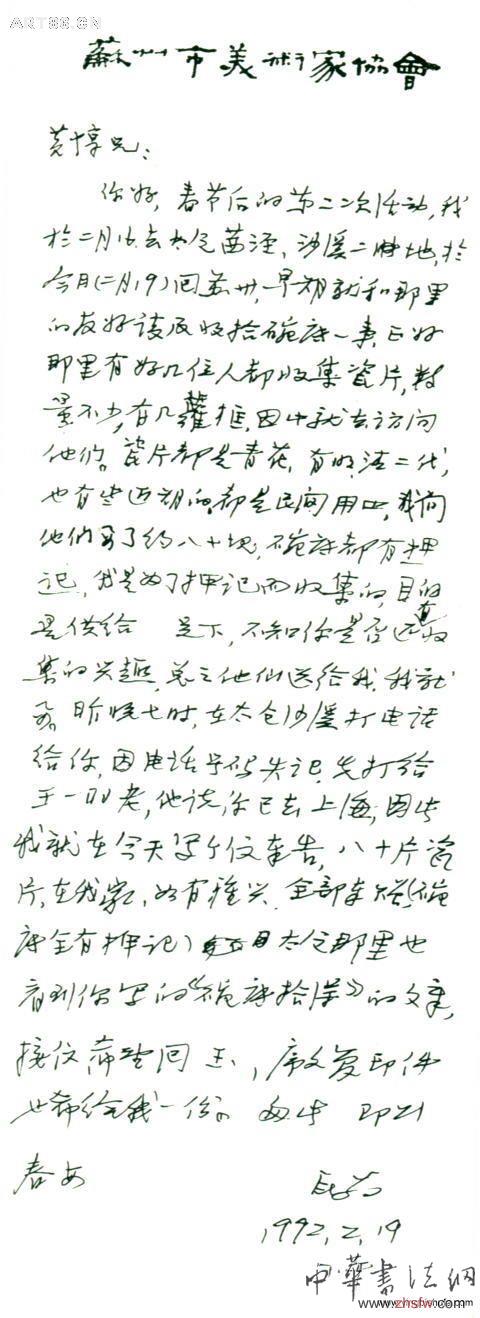 ART86.CN
蘇州市美術家協會
黄惇兄：
你好，春节后的第二次活动，我
於二月16去太仓茜泾、沙溪二地，於
今日(二月19)回苏州，早期就和那里
的友好谈及收拾碗底一事，正好
那里有好几位人都收集瓷片，数
量不少，有几籮框，因此就去访问
他们。瓷片都是青花，有明、清二代，
也有些近期的，都是民间用品，我向
他们要了约八十块，碗底都有押
记，我是为了押记而收集的，目的
是供给 足下，不知你是否还有收
集的兴趣，总之他们送给我，我就
要。昨晚七时，在太仓沙溪打电话
给你，因电话号码失记，先打给
王一羽老，他说你已去上海，因此
我就在今天写个信奉告，八十片瓷
片，在我家，如有雅兴，全部奉赠(碗
底全有押记) 太仓那里也
看到你写的《碗底拾学》的文章，
接信希望回玉，序文复印件
也希给我一份。匆此 即颂
春安
1992.2.19
中華書法網
www.zhsfw.com